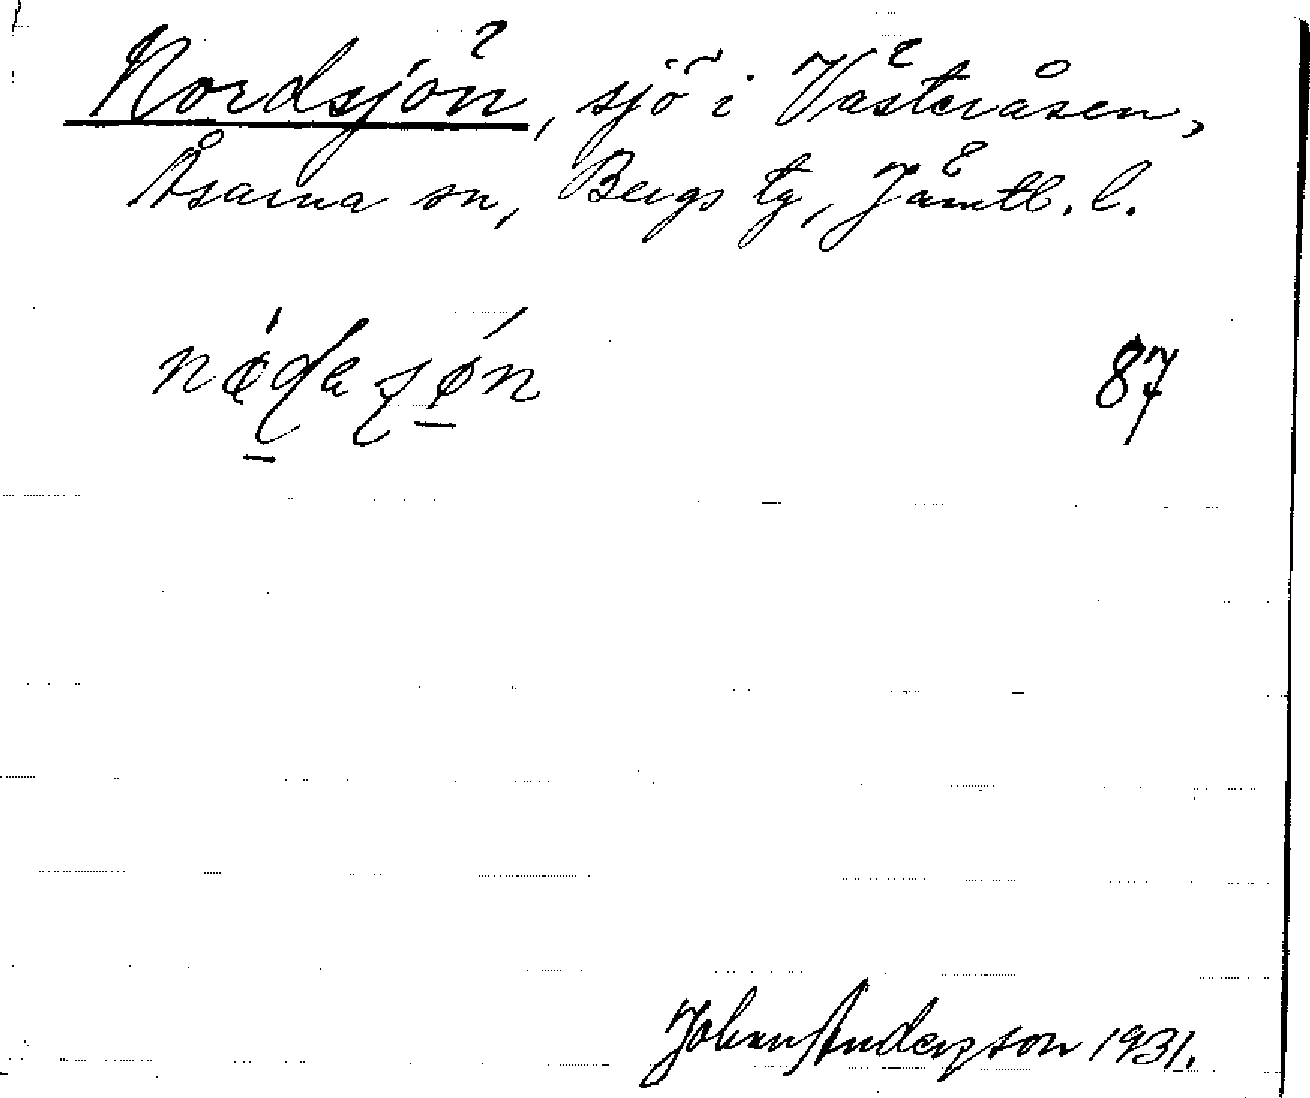 Nordsjön, sjö i Västeråsen,
Åsarna sn, Bergs tg, Jämtl. l.
87
Johan Anderzson 1931.